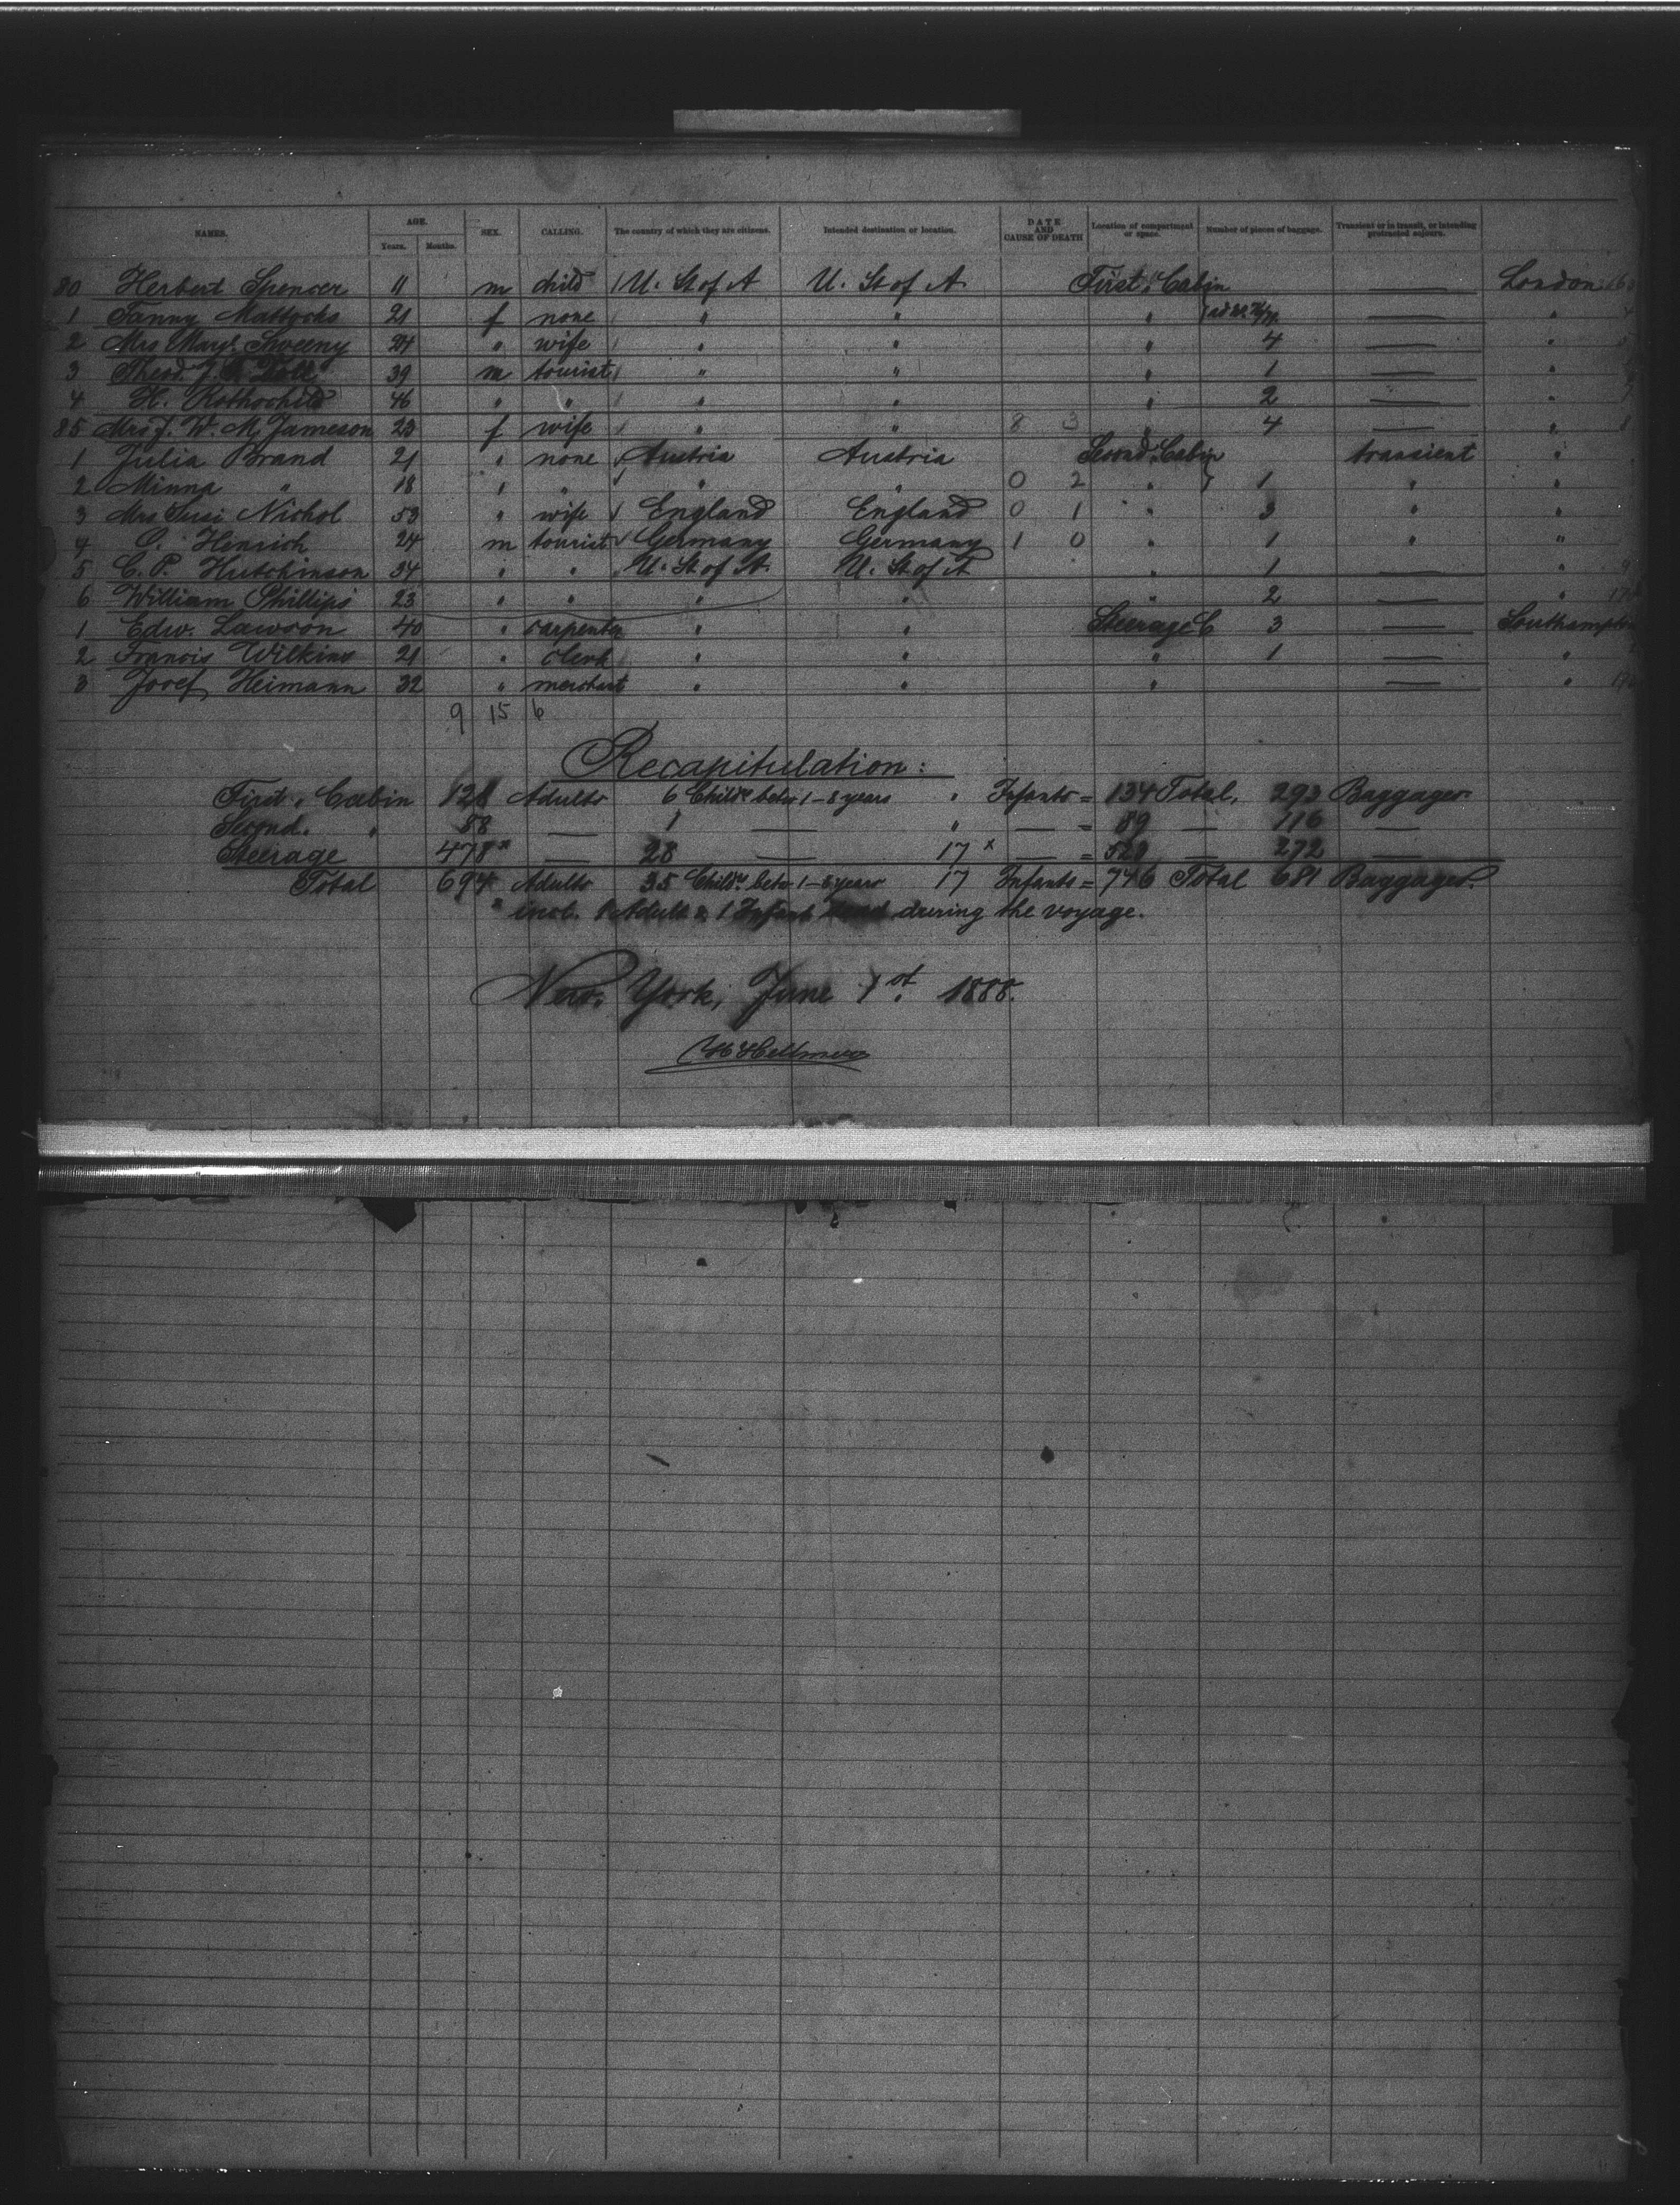 NAMES. AGE. Years. Months. SEX. CALLING. The country of which they are citizens. Intended destination or location. DATE AND CAUSE OF DEATH Location of compartment or space. Number of pieces of baggage. Transient or in transit, or intending protracted sojourn.
80 Herbert Spencer 11 m child U. St of A U. St of A First Cabin — London
1 Fanny Mattocks 21 f none " " " — "
2 Mrs Sweeny 24 " wife " " " 4 — "
3 Theod. 39 m tourist " " " 1 — "
4 H. Rothschild 46 " " " " " 2 — "
85 Mrs J. W. M. Jameson 23 f wife " " 8 3 " 4 — "
1 Julia Brand 21 " none Austria Austria Second Cabin transient "
2 Minna " 18 " " " " 0 2 " 1 " "
3 Mrs Susi Nichol 53 " wife England England 0 1 " 3 " "
4 O. Heinrich 24 m tourist Germany Germany 1 0 " 1 " "
5 C. P. Hutchinson 34 " " U. St of A. U. St of A " 1 — "
6 William Phillips 23 " " " " " 2 — "
1 Edw. Lawson 40 " carpenter " " Steerage C 3 — Southampton
2 Francis Wilkins 21 " clerk " " " 1 — "
3 Josef Heimann 32 " merchant " " " — "
9 15 6
Recapitulation:
First Cabin 128 Adults 6 Childr. betw 1-8 years " Infants = 134 Total, 293 Baggages
Second. " 88 — 1 — " — = 89 — 116 —
Steerage 478 x — 28 — 17 x — = 523 — 272 —
Total 694 Adults 35 Childr. betw 1-8 years 17 Infants = 746 Total 681 Baggages.
x incl. 1 Adult & 1 Infant during the voyage.
New York, June 1st. 1888.